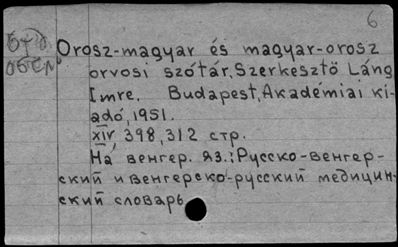 6
Orosz-magyar és magyar-orosz
orvosi szótár. Szerkesztö Láng
Imre. Budapest, Akadémiai ki-
adó, 1951.
XIV 398, 312 стр.
На венгер. яз.: Русско-венгер-
ский и венгерско-русский медицин-
ский словарь.